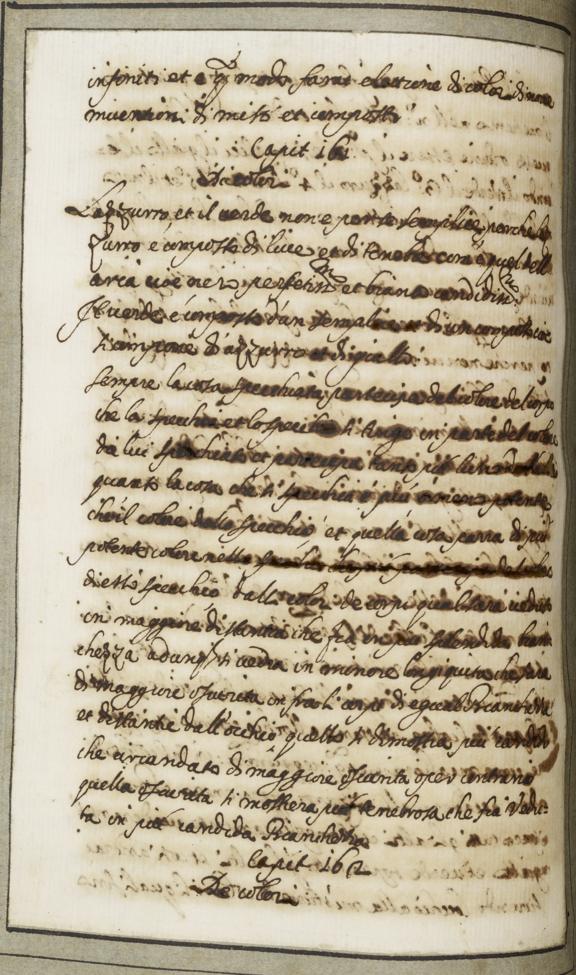 infiniti et e q modo farai elettione di color di nove
invention di misti et composti
Capit 161
De colori
L'azzurro et il verde non e per se semplice perche l'az
zurro e composto di luce et di tenebre com'e quel dell
aria cioe nero perfetiss et bianco candidiss
Il verde e composto d'un semplice et di un composto cioe
si compone d'azzurro et di giallo
sempre la cosa specchiata partecipa del colore del corpo
che la specchia et lo specchio si tinge in parte del colore
da lui specchiato et partecipa tanto piu l'un dell'altro
quanto la cosa che si specchia e piu o meno potente
che il colore dello specchio et quella cosa parra di piu
potente colore nello specchio che piu partecipa del colore
di esso specchio dall colori de corpi quello sara veduto
in maggiore distantia che fia di piu splendida bian
chezza adunq si vedra in minore longiquita che sara
di maggiore oscurita infra li corpi di equal bianchezza
et distantie dall'occhio quello si dimostra piu candido
che circondato di maggiore oscurita o per contrario
quella oscurita si mostrera piu tenebrosa che fia vedu-
ta in piu candida bianchezza
Capit 162
De colori